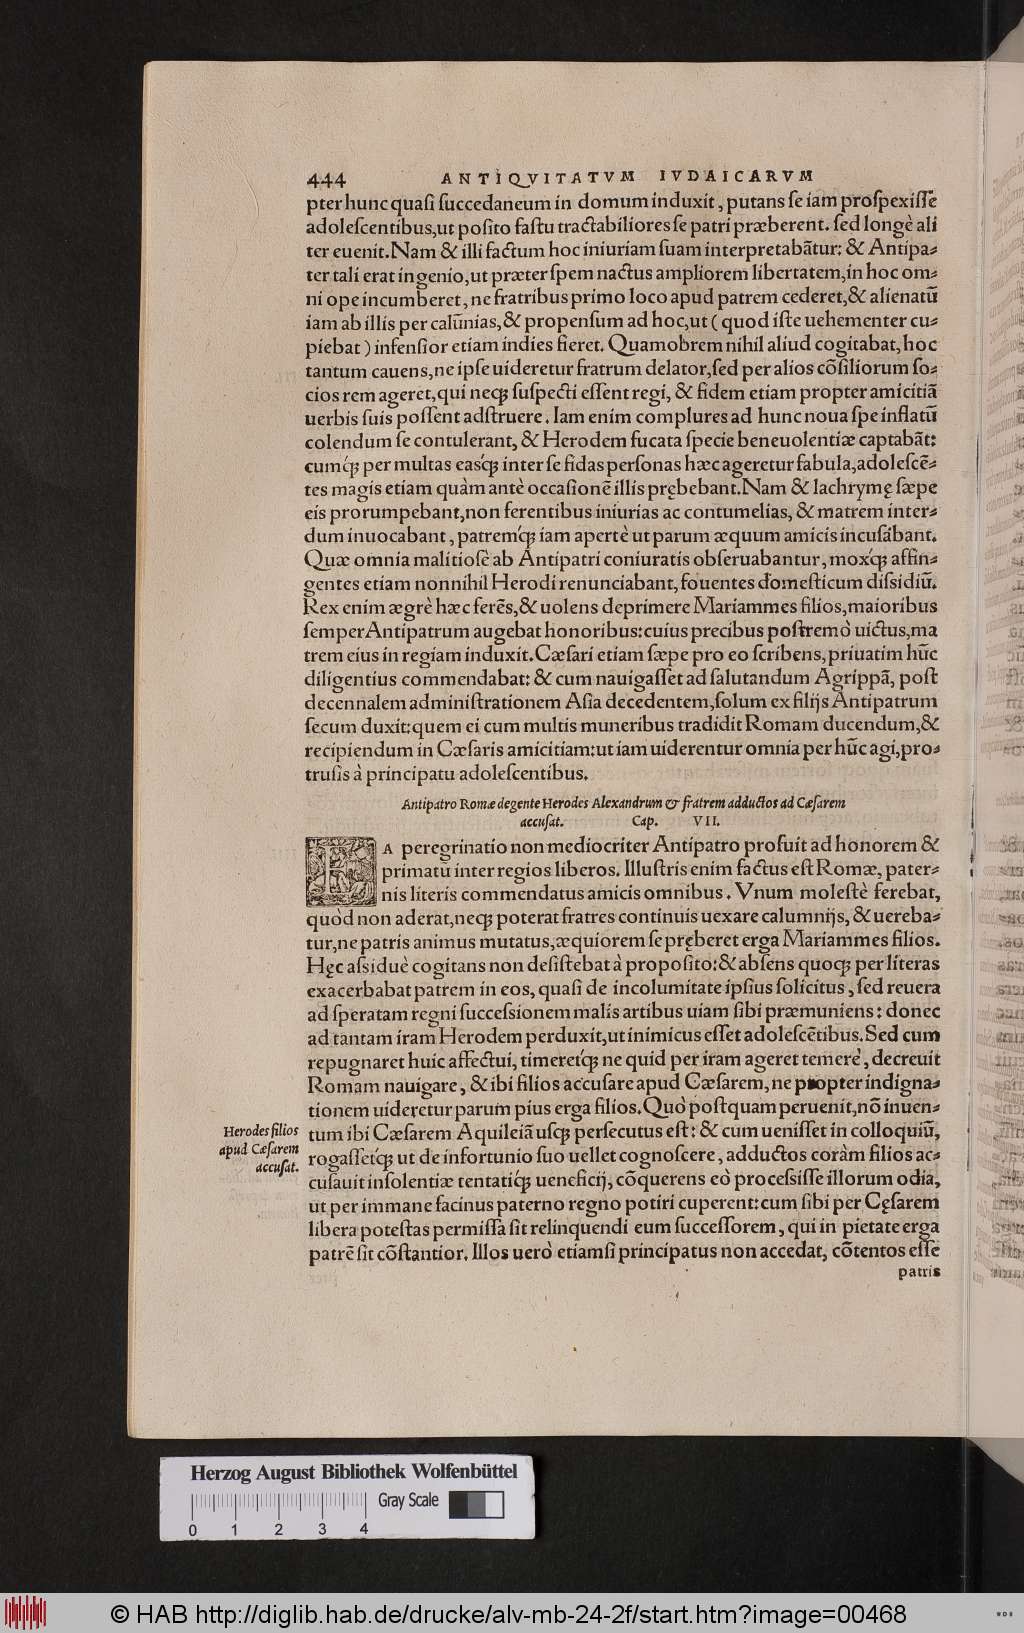 444 ANTIQVITATVM IVDAICARVM
pter hunc quasi succedaneum in domum induxit, putans se iam prospexisse
adolescentibus, ut posito fastu tractabiliores se patri præberent. sed longè ali
ter euenit. Nam & illi factum hoc iniuriam suam interpretabãtur: & Antipa-
ter tali erat ingenio, ut præter spem nactus ampliorem libertatem, in hoc om-
ni ope incumberet, ne fratribus primo loco apud patrem cederet, & alienatũ
iam ab illis per calũnias, & propensum ad hoc, ut (quod iste uehementer cu-
piebat) infensior etiam indies fieret. Quamobrem nihil aliud cogitabat, hoc
tantum cauens, ne ipse uideretur fratrum delator, sed per alios cõsiliorum so-
cios rem ageret, qui neqꝫ suspecti essent regi, & fidem etiam propter amicitiã
uerbis suis possent adstruere. Iam enim complures ad hunc noua spe inflatũ
colendum se contulerant, & Herodem fucata specie beneuolentiæ captabãt:
cumqꝫ́ per multas easqꝫ́ inter se fidas personas hæc ageretur fabula, adolescẽ-
tes magis etiam quàm antè occasionẽ illis prębebant. Nam & lachrymę sæpe
eis prorumpebant, non ferentibus iniurias ac contumelias, & matrem inter-
dum inuocabant, patremqꝫ́ iam apertè ut parum æquum amicis incusabant.
Quæ omnia malitiosè ab Antipatri coniuratis obseruabantur, moxqꝫ́ affin-
gentes etiam nonnihil Herodi renunciabant, fouentes domesticum dissidiũ.
Rex enim ægrè hæc ferẽs, & uolens deprimere Mariammes filios, maioribus
semper Antipatrum augebat honoribus: cuius precibus postremò uictus, ma
trem eius in regiam induxit. Cæsari etiam sæpe pro eo scribens, priuatim hũc
diligentius commendabat: & cum nauigasset ad salutandum Agrippã, post
decennalem administrationem Asia decedentem, solum ex filijs Antipatrum
secum duxit: quem ei cum multis muneribus tradidit Romam ducendum, &
recipiendum in Cæsaris amicitiam: ut iam uiderentur omnia per hũc agi, pro-
trusis à principatu adolescentibus.
Antipatro Romæ degente Herodes Alexandrum & fratrem adductos ad Cæsarem
accusat. Cap. VII.
EA peregrinatio non mediocriter Antipatro profuit ad honorem &
primatũ inter regios liberos. Illustris enim factus est Romæ, pater-
nis literis commendatus amicis omnibus. Vnum molestè ferebat,
quòd non aderat, neqꝫ poterat fratres continuis uexare calumnijs, & uereba-
tur, ne patris animus mutatus, æquiorem se pręberet erga Mariammes filios.
Hęc assiduè cogitans non desistebat à proposito: & absens quoqꝫ per literas
exacerbabat patrem in eos, quasi de incolumitate ipsius solicitus, sed reuera
ad speratam regni successionem malis artibus uiam sibi præmuniens: donec
ad tantam iram Herodem perduxit, ut inimicus esset adolescẽtibus. Sed cum
repugnaret huic affectui, timeretqꝫ́ ne quid per iram ageret temerè, decreuit
Romam nauigare, & ibi filios accusare apud Cæsarem, ne propter indigna-
tionem uideretur parum pius erga filios. Quò postquam peruenit, nõ inuen-
Herodes filios
apud Cæsarem
accusat.
tum ibi Cæsarem Aquileiã usqꝫ persecutus est: & cum uenisset in colloquiũ,
rogassetqꝫ́ ut de infortunio suo uellet cognoscere, adductos coràm filios ac-
cusauit insolentiæ tentatiqꝫ́ ueneficij, cõquerens eò processisse illorum odia,
ut per immane facinus paterno regno potiri cuperent: cum sibi per Cęsarem
libera potestas permissa sit relinquendi eum successorem, qui in pietate erga
patrẽ sit cõstantior. Illos uerò etiamsi principatus non accedat, cõtentos esse
patris
Herzog August Bibliothek Wolfenbüttel
Gray Scale
0 1 2 3 4
© HAB http://diglib.hab.de/drucke/alv-mb-24-2f/start.htm?image=00468